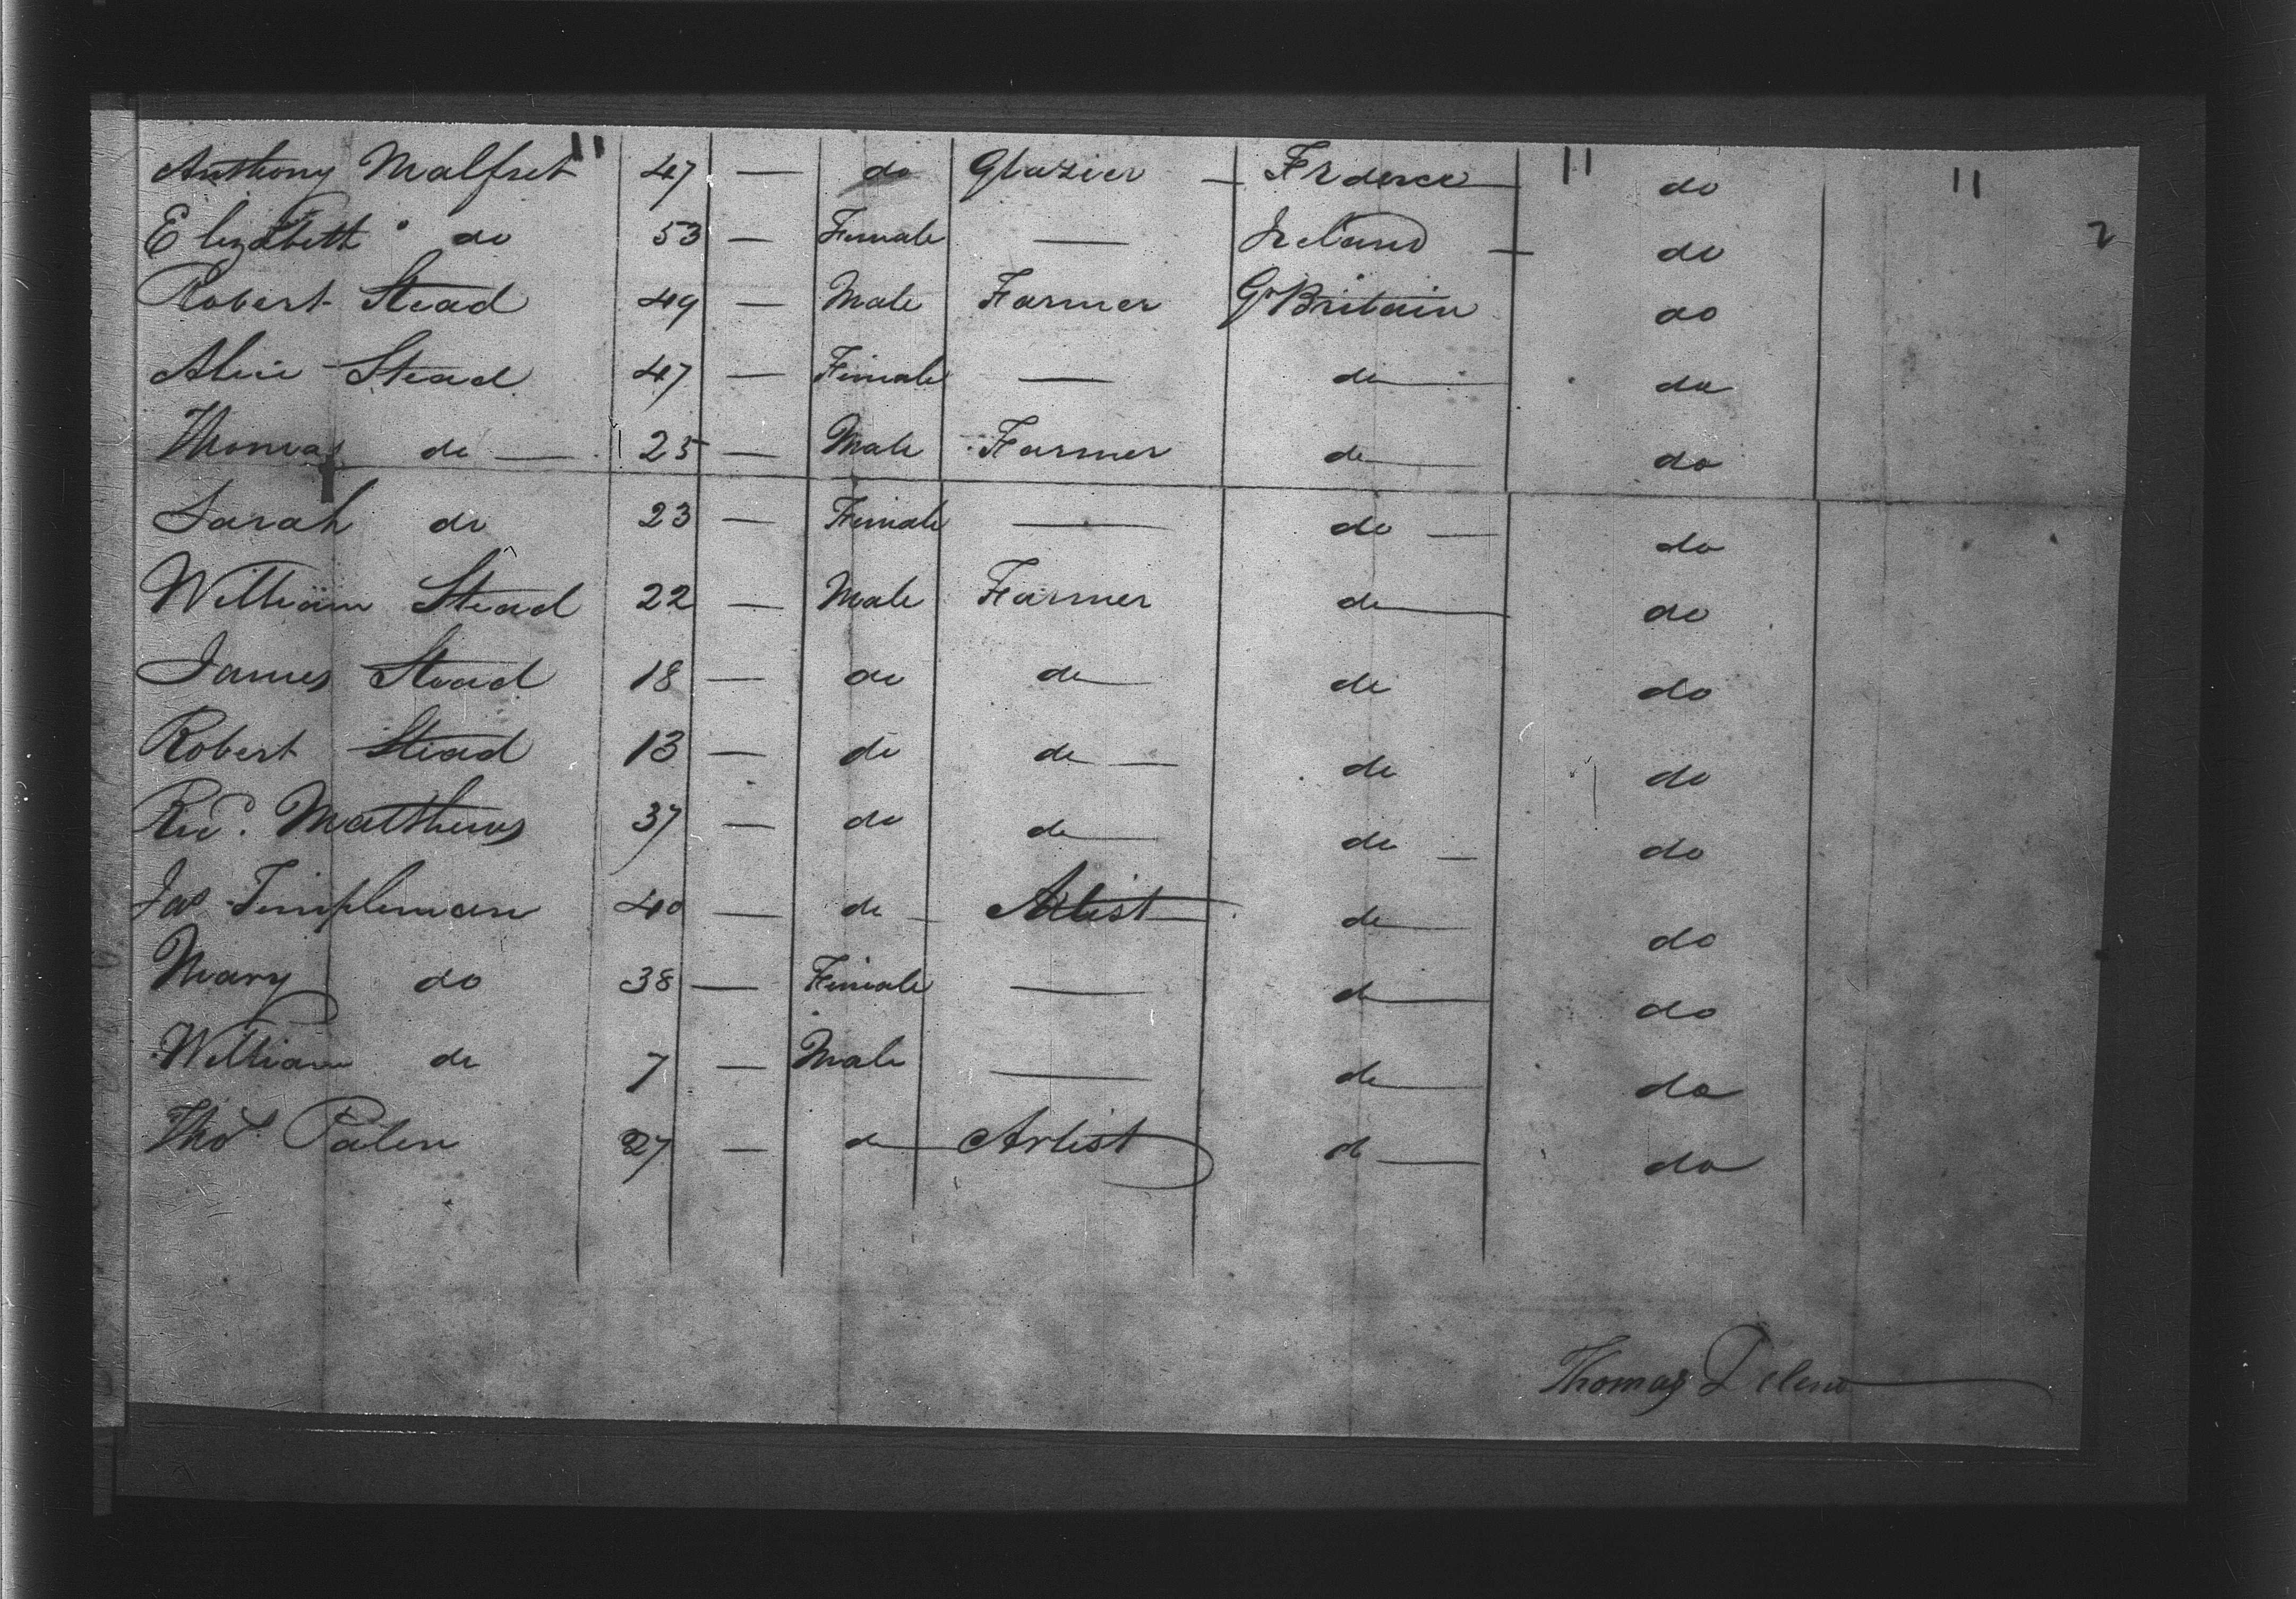 Anthony Malfret " 47 — do Glazier — France — " do "
Elizabeth do 53 — Female — Ireland — do 2
Robert Stead 49 — Male Farmer Gr Britain do
Alice Stead 47 — Female — do — do
Thomas do — 25 — Male Farmer do — do
Sarah do 23 — Female — do — do
William Stead 22 — Male Farmer do — do
James Stead 18 — do do — do do
Robert Stead 13 — do do — do do
Matthews 37 — do do — do — do
Jas Templeman 40 — do — Artist — do — do
Mary do 38 — Female — do — do
William do 7 — Male — do — do
Thos 27 — do — Artist do — do
Thomas